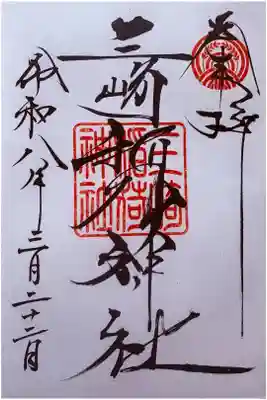 奉拝
三崎稲荷神社
三崎稲荷神社
令和八年三月二十二月